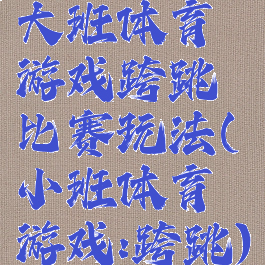 大班体育
游戏跨跳
比赛玩法(
小班体育
游戏:跨跳)